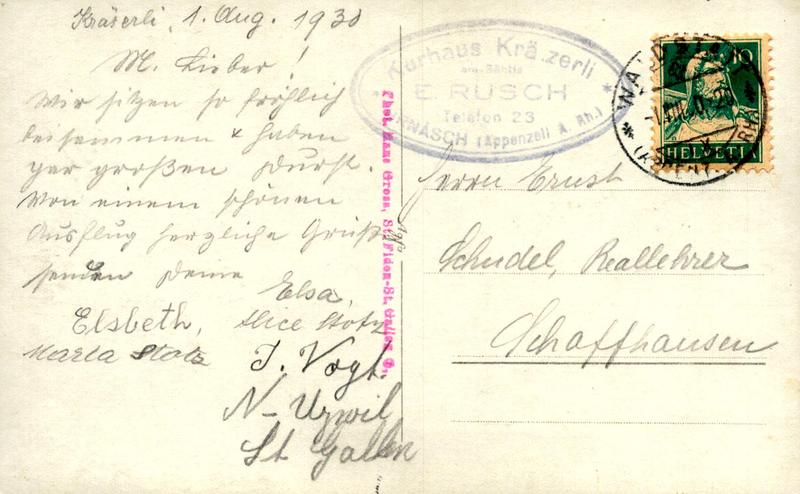 Kräserli, 1. Aug. 1930
M. Lieber!
Wir sitzen so fröhlich
beisemmen & haben
ger großen Durst.
Von einem schönen
Ausflug herzliche Grüße
senden Deine
Elsa,
Elsbeth, Alice Stotz
Marta Stotz
J. Vogt.
N-Uzwil
St Gallen
Phot. Hans Gross, St. Fiden-St. Gallen O.
Kurhaus Kräzerli
am Säntis
E. RUSCH
Telefon 23
URNÄSCH (Appenzell A. Rh.)
10
HELVETIA
Herrn Ernst
Schudel, Reallehrer
Schaffhausen